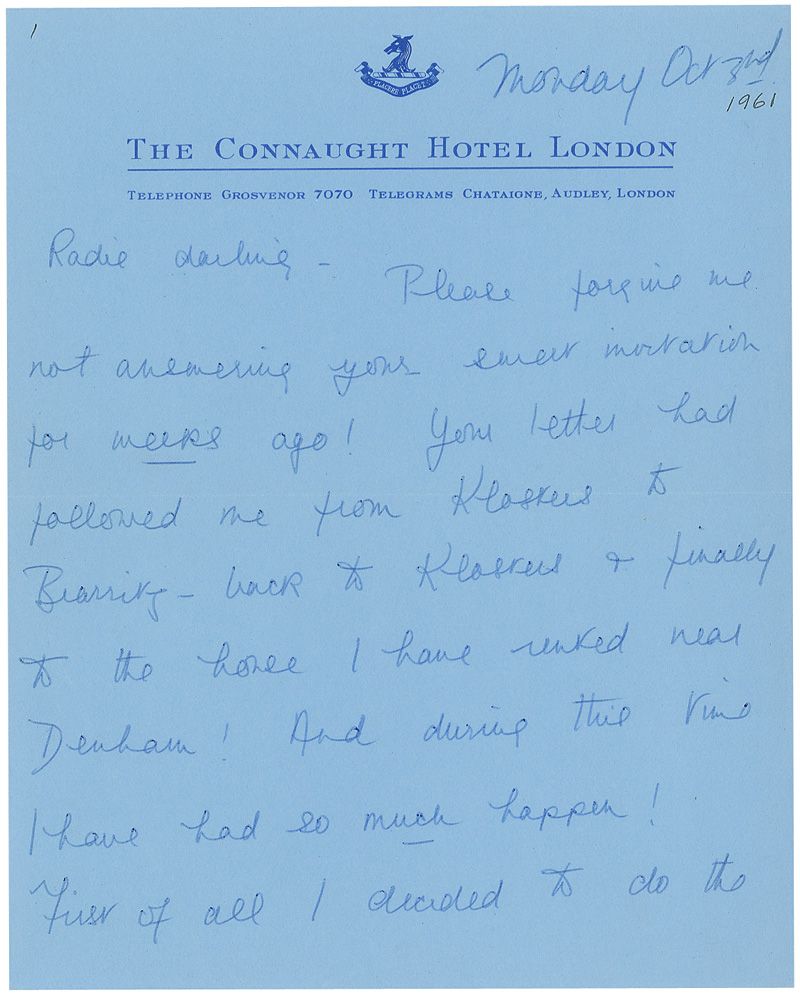 1
PLACERE PLACET
Monday Oct 3rd
1961
THE CONNAUGHT HOTEL LONDON
TELEPHONE GROSVENOR 7070 TELEGRAMS CHATAIGNE, AUDLEY, LONDON
Radie darling -
Please forgive me
not answering your sweet invitation
for weeks ago! Your letter had
followed me from Klosters to
Biarritz - back to Klosters & finally
to the house I have rented near
Denham! And during this time
I have had so much happen!
First of all I decided to do the